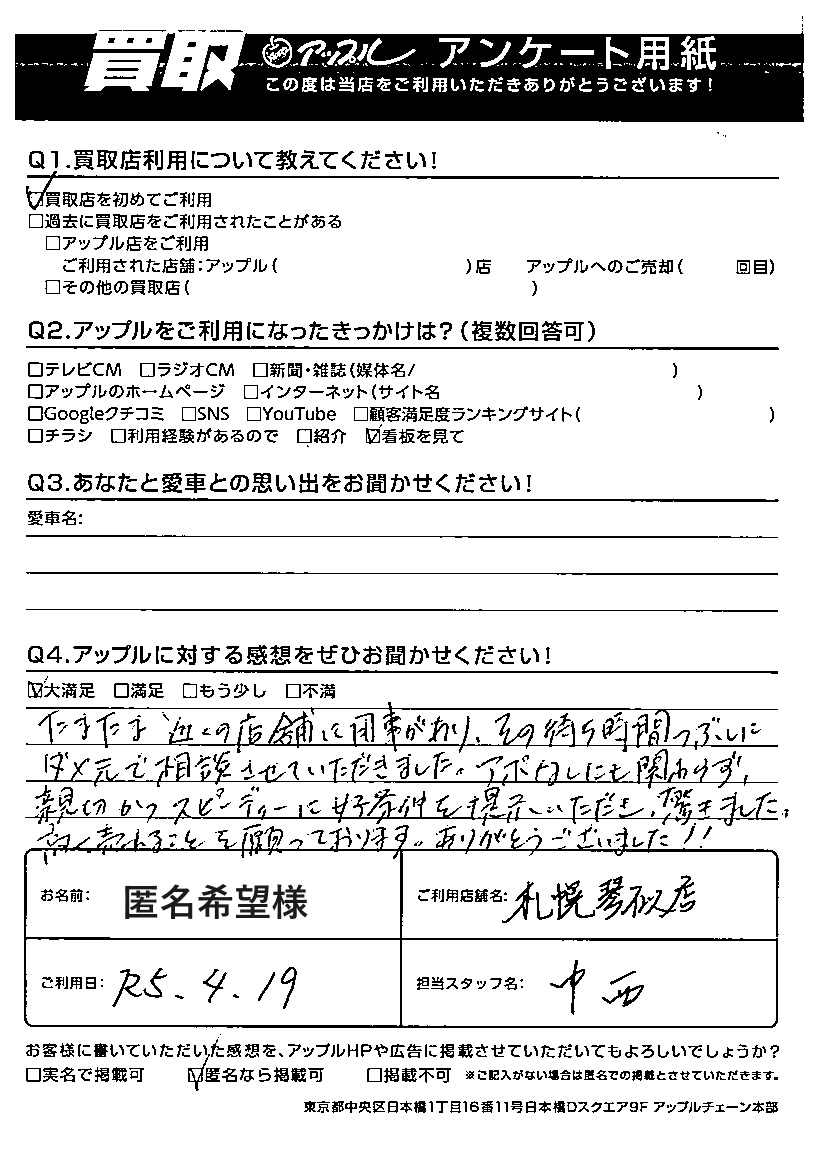 買取 アップル アンケート用紙
この度は当店をご利用いただきありがとうございます!
Q1.買取店利用について教えてください!
☑買取店を初めてご利用
□過去に買取店をご利用されたことがある
□アップル店をご利用
ご利用された店舗:アップル( )店 アップルへのご売却( 回目)
□その他の買取店( )
Q2.アップルをご利用になったきっかけは?(複数回答可)
□テレビCM □ラジオCM □新聞・雑誌(媒体名/ )
□アップルのホームページ □インターネット(サイト名 )
□Googleクチコミ □SNS □YouTube □顧客満足度ランキングサイト( )
□チラシ □利用経験があるので □紹介 ☑看板を見て
Q3.あなたと愛車との思い出をお聞かせください!
愛車名:
Q4.アップルに対する感想をぜひお聞かせください!
☑大満足 □満足 □もう少し □不満
たまたま近くの店舗に用事があり、その待ち時間つぶしに
ダメ元で相談させていただきました。アポなしにも関わらず、
親切かつスピーディーに好条件を提示いただき、驚きました。
高く売れることを願っております。ありがとうございました!!
お名前: 匿名希望様 ご利用店舗名: 札幌琴似店
ご利用日: R5.4.19 担当スタッフ名: 中西
お客様に書いていただいた感想を、アップルHPや広告に掲載させていただいてもよろしいでしょうか?
□実名で掲載可 ☑匿名なら掲載可 □掲載不可 ※ご記入がない場合は匿名での掲載とさせていただきます。
東京都中央区日本橋1丁目16番11号日本橋Dスクエア9F アップルチェーン本部